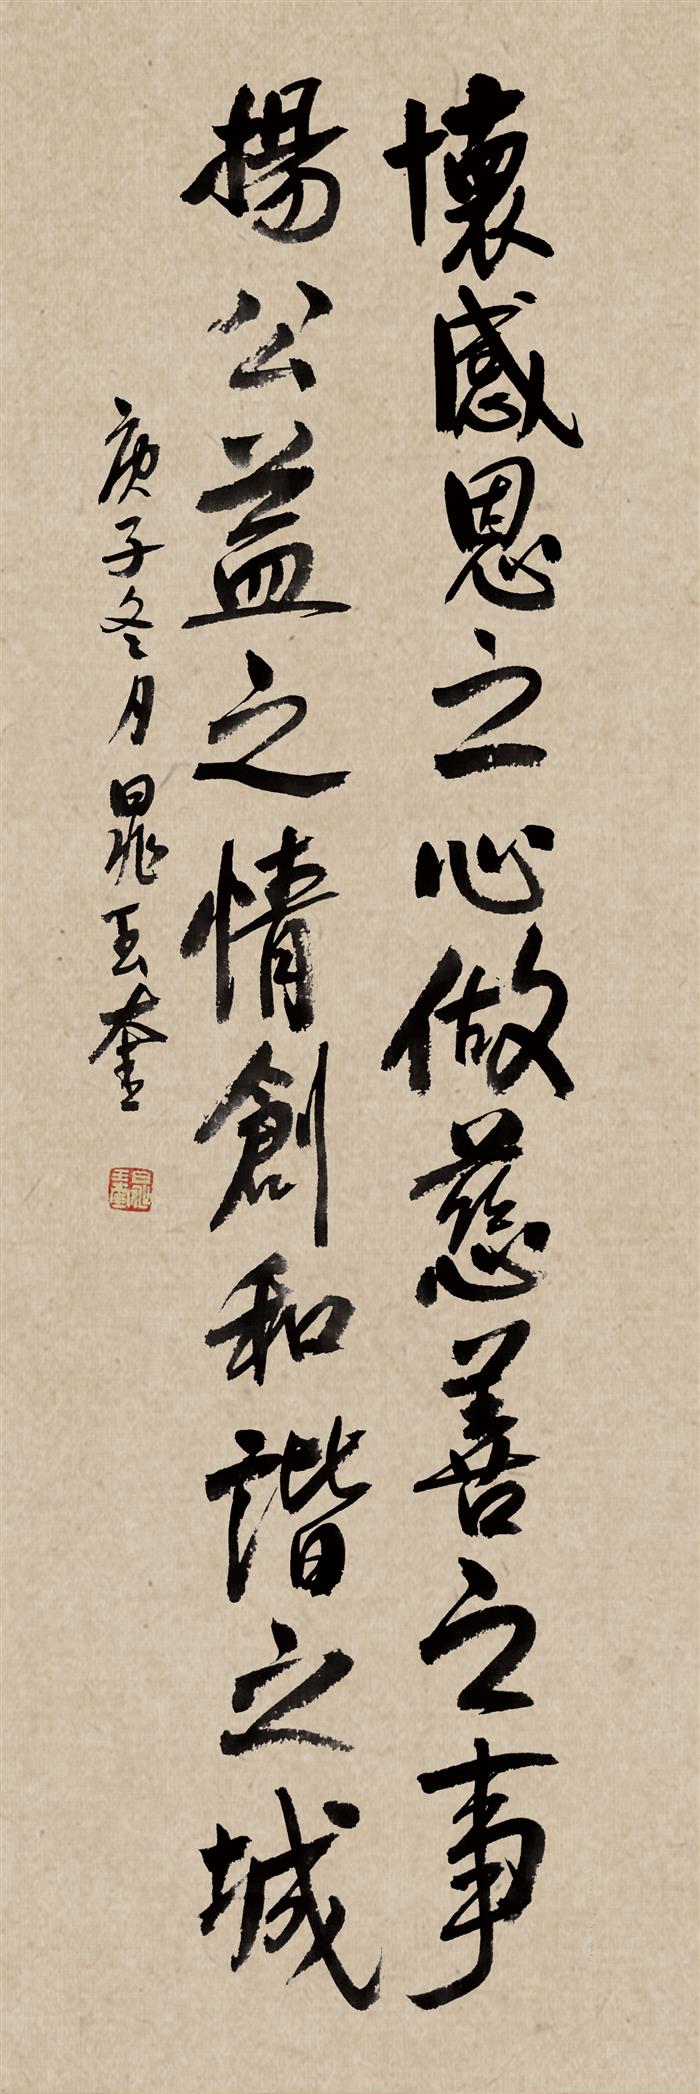 懷感恩之心做慈善之事
揚公益之情創和諧之城
庚子冬月晁玉奎